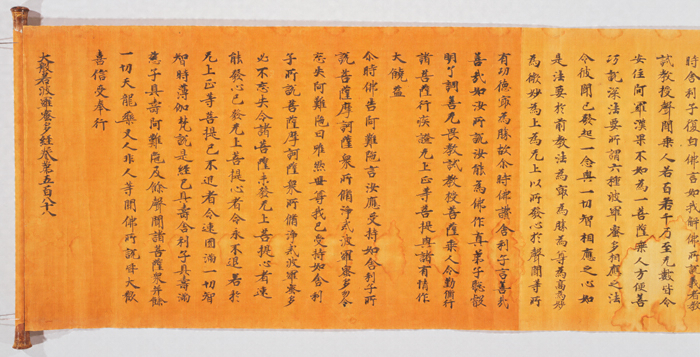 時舍利子復白佛言如我解佛所說義者教
誡教授聲聞乘人若百若千乃至无數皆令
安住阿羅漢果不如為一菩薩乘人方便善
巧說深法要所謂六種波羅蜜多相應之法
令彼聞已發起一念與一切智相應之心如
是法要於前教法為最為勝為尊為高為妙
為微妙為上為无上以所發心於聲聞等所
有功德最為勝故尒時佛讚舍利子言善哉
善哉如汝所說汝能為佛作真弟子聰叡
明了調善无畏教誡教授菩薩乘人令勤修行
諸菩薩行疾證无上正等菩提與諸有情作
大饒益
尒時佛告阿難陀言汝應受持如舍利子所
說菩薩摩訶薩衆所修淨戒波羅蜜多勿令
忘失阿難陀曰唯然世尊我已受持如舍利
子所說菩薩摩訶薩衆所修淨戒波羅蜜多
必不忘失令諸菩薩未發无上菩提心者速
能發心已發无上菩提心者令永不退若於
无上正等菩提已不退者令速圓滿一切智
智時薄伽梵說是經已具壽舍利子具壽滿
慈子具壽阿難陀及餘聲聞諸菩薩衆并餘
一切天龍藥叉人非人等聞佛所說皆大歡
喜信受奉行
大般若波羅蜜多經卷第五百八十八